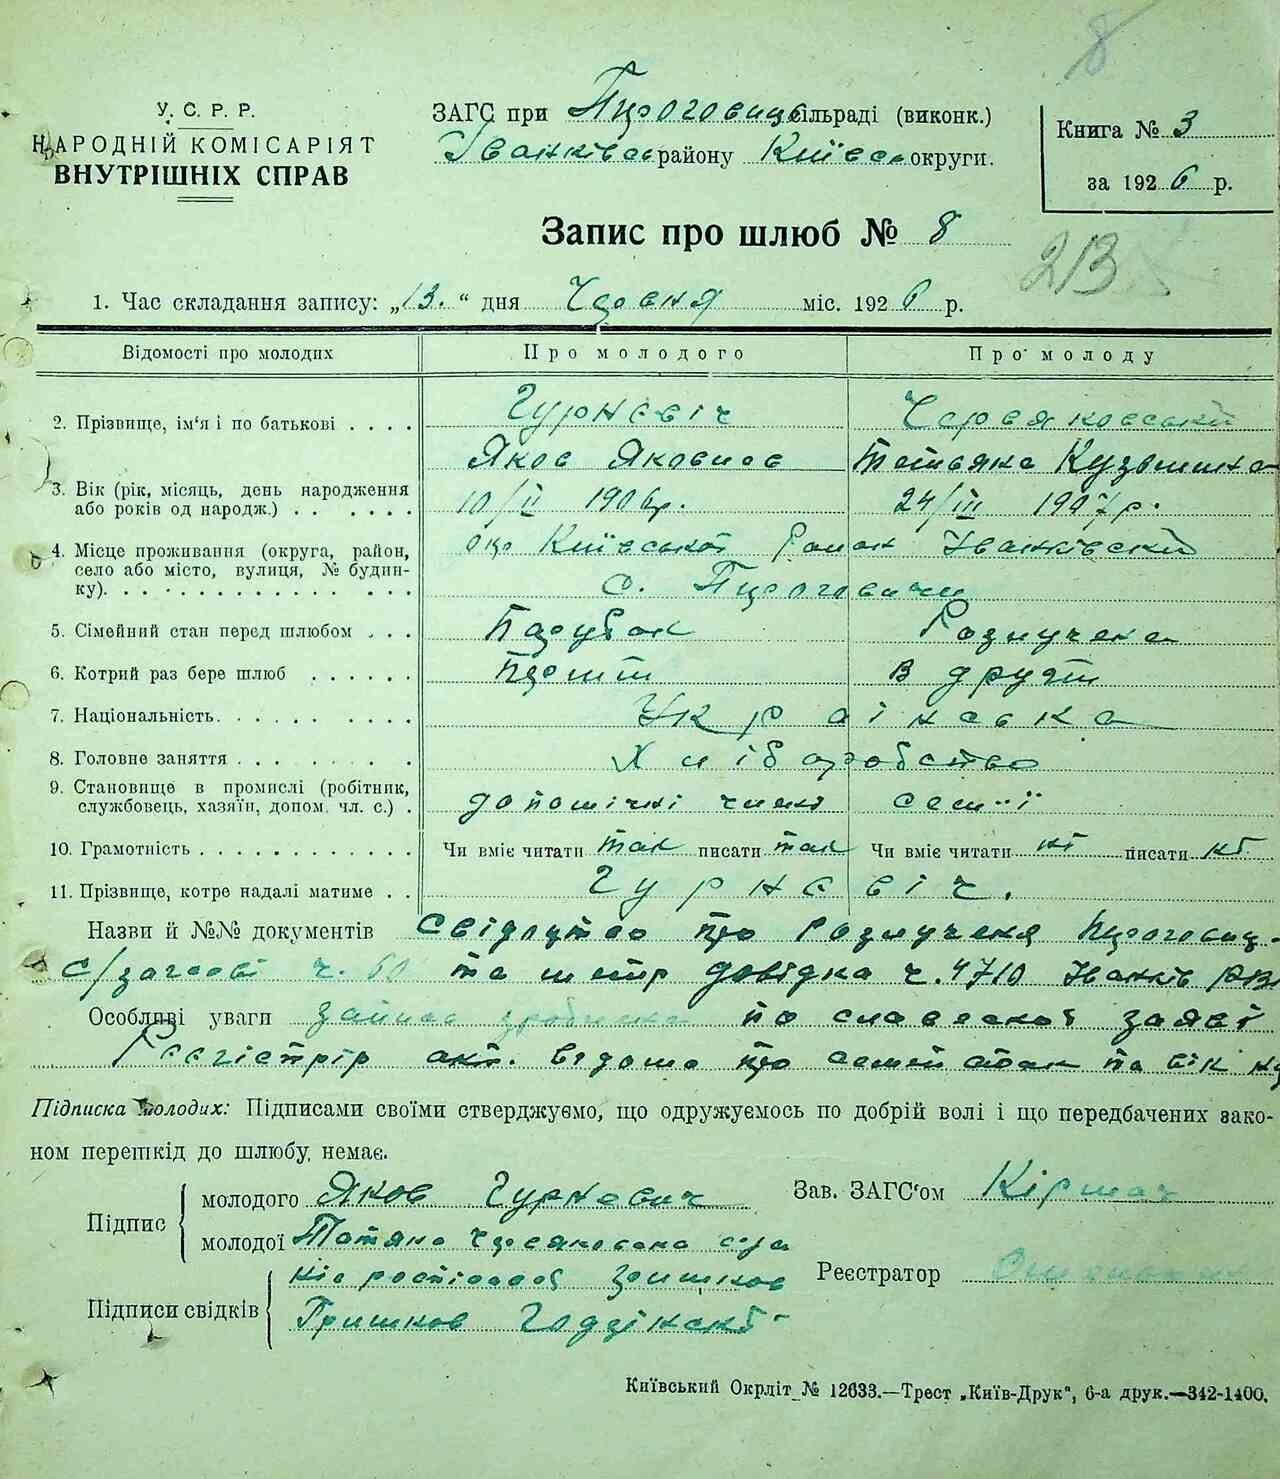 У. С. Р. Р.
НАРОДНІЙ КОМІСАРІЯТ
ВНУТРІШНІХ СПРАВ
8
ЗАГС при Пороговицькій сільраді (виконк.)
Іванківсь району Київсь округи.
Книга № 3
за 1926 р.
Запис про шлюб № 8
213
1. Час складання запису: „13." дня Червня міс. 1926 р.
Відомості про молодих Про молодого Про молоду
2. Прізвище, ім'я і по батькові . . . . Гурнєвіч
Яков Яковлев Тетьяна Кузьминна
3. Вік (рік, місяць, день народження або років од народж.) . . . . . . 10/II 1906р. 24/III 1907р.
4. Місце проживання (округа, район, село або місто, вулиця, № будинку). . . . . . . . . . . . . . . окр Київської Район Іванківский
с. Пороговичи
5. Сімейний стан перед шлюбом . . . Парубок Розлучена
6. Котрий раз бере шлюб . . . . . . Перши В други
7. Національність. . . . . . . . . . Українська
8. Головне заняття . . . . . . . . . Хліборобство
9. Становище в промислі (робітник, службовець, хазяїн, допом. чл. с.) . допомічні члени семьї
10. Грамотність . . . . . . . . . . . . Чи вміє читати так писати так Чи вміє читати ні писати ні
11. Прізвище, котре надалі матиме . . Гурнєвіч.
Назви й №№ документів Свідоцтво про Розлученя
С/загсові ч. 60 та довідка ч. 4710 Іванків
Особливі уваги по словесной заяві
Реєгістрір акт. відомо про семей стан та вік
Підписка молодих: Підписами своїми стверджуємо, що одружуємось по добрій волі і що передбачених законом перешкід до шлюбу немає.
Підпис
молодого Яков Гурневич
молодої Татяна
Підписи свідків
Гришков
Зав. ЗАГС'ом Кірмач
Реєстратор
Київський Окрліт № 12633.—Трест „Київ-Друк", 6-а друк.—342-1400.